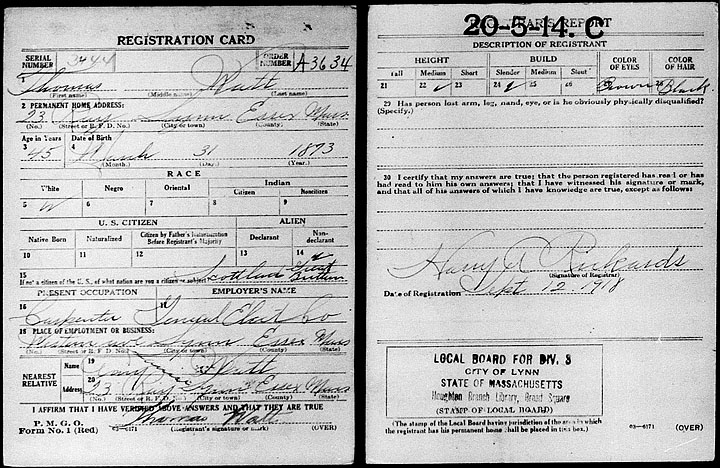 REGISTRATION CARD
SERIAL NUMBER 3444
ORDER NUMBER A3634
1 Thomas Watt
(First name) (Middle name) (Last name)
2 PERMANENT HOME ADDRESS:
23 Lynn Essex Mass
(No.) (Street or R. F. D. No.) (City or town) (County) (State)
Age in Years Date of Birth
3 4
45 March 31 1873
(Month.) (Day.) (Year.)
RACE
White Negro Oriental Indian
Citizen Noncitizen
5 W 6 7 8 9
U. S. CITIZEN ALIEN
Native Born Naturalized Citizen by Father's Naturalization Before Registrant's Majority Declarant Non-declarant
10 11 12 13 14
15 Scotland Great Britain
If not a citizen of the U. S., of what nation are you a citizen or subject?
PRESENT OCCUPATION EMPLOYER'S NAME
16 Carpenter General Elect Co
18 PLACE OF EMPLOYMENT OR BUSINESS:
Western ave Lynn Essex Mass
(No.) (Street or R. F. D. No.) (City or town) (County) (State)
NEAREST RELATIVE
Name 19 Watt
Address 20 23 Lynn Essex Mass
(No.) (Street or R. F. D. No.) (City or town) (County) (State)
I AFFIRM THAT I HAVE VERIFIED ABOVE ANSWERS AND THAT THEY ARE TRUE
P. M. G. O.
Form No. 1 (Red) 03—6171 Thomas Watt
(Registrant's signature or mark) (OVER)
REGISTRAR'S REPORT
20-5-14. C
DESCRIPTION OF REGISTRANT
HEIGHT BUILD COLOR OF EYES COLOR OF HAIR
Tall Medium Short Slender Medium Stout
21 22 ✓ 23 24 ✓ 25 26 Brown Black
29 Has person lost arm, leg, hand, eye, or is he obviously physically disqualified?
(Specify.)
30 I certify that my answers are true; that the person registered has read or has
had read to him his own answers; that I have witnessed his signature or mark,
and that all of his answers of which I have knowledge are true, except as follows:
Harry A Rickards
(Signature of Registrar)
Date of Registration Sept 12 1918
LOCAL BOARD FOR DIV. 3
CITY OF LYNN
STATE OF MASSACHUSETTS
Houghton Branch Library, Broad Square
(STAMP OF LOCAL BOARD)
(The stamp of the Local Board having jurisdiction of the area in which
the registrant has his permanent home shall be placed in this box.)
03—6171 (OVER)